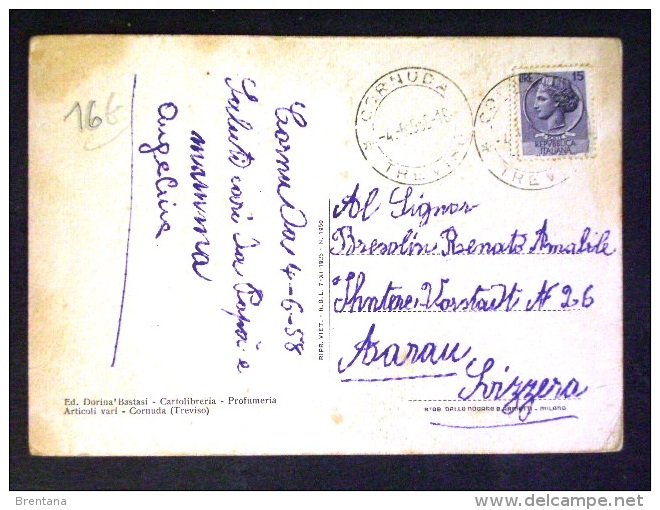 16€
Cornuda 4-6-58
Saluti cari da Papà e
mamma
Angelina
CORNUDA
-4.6.58-18
TREVISO
LIRE 15
REPVBBLICA
ITALIANA
TREVISO
Al Signor
Bresolin Renato Amabile
Vorstadt N 26
Aarau
Svizzera
RIPR. VIET. - R.D.L. 7-XI-1925 - N. 1950
Ed. Dorina Bastasi - Cartolibreria - Profumeria
Articoli vari - Cornuda (Treviso)
DALLE NOGARE E ARMETTI - MILANO
Brentana
delcampe.net